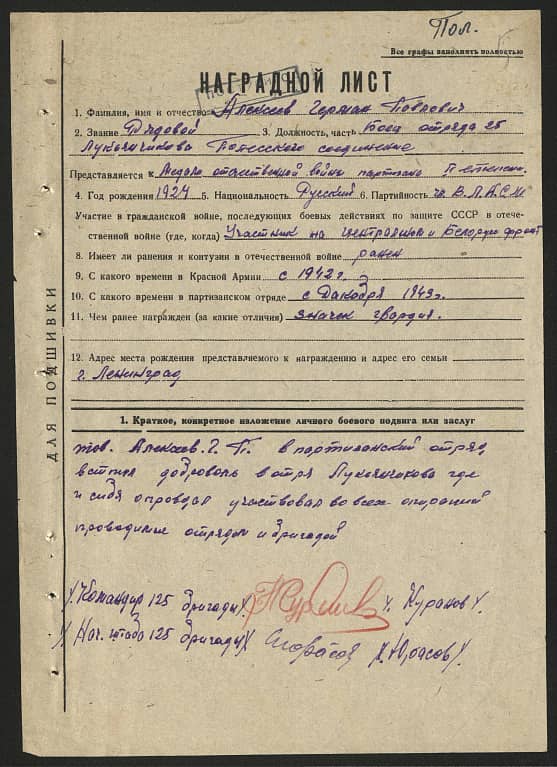 Пол.
Все графы заполнять полностью
НАГРАДНОЙ ЛИСТ
1. Фамилия, имя и отчество Алексеев Герман Павлович
2. Звание Рядовой 3. Должность, часть Боец отряда 25
Лукьянчикова Полесского соединение
Представляется к Медали отечественной войны партизана
4. Год рождения 1924 5. Национальность Русский 6. Партийность чл. В.Л.К.С.М.
Участие в гражданской войне, последующих боевых действиях по защите СССР в отече-
ственной войне (где, когда) Участник на центральном и Белорус фронт
8. Имеет ли ранения и контузии в отечественной войне ранен
9. С какого времени в Красной Армии с 1942 г.
10. С какого времени в партизанском отряде с Декабря 1943 г.
11. Чем ранее награжден (за какие отличия) значек гвардия.
12. Адрес места рождения представляемого к награждению и адрес его семьи
г. Ленинград
ДЛЯ ПОДШИВКИ
1. Краткое, конкретное изложение личного боевого подвига или заслуг
тов. Алексеев. Г. П. в партизанский отряд
вступил доброволь в отря Лукьянчикова где
и себя оправдал участвовал во всех операций
проводимые отрядом и бригадой
Командир 125 бригады Куранов
Нач. штаба 125 бригады Юрасов